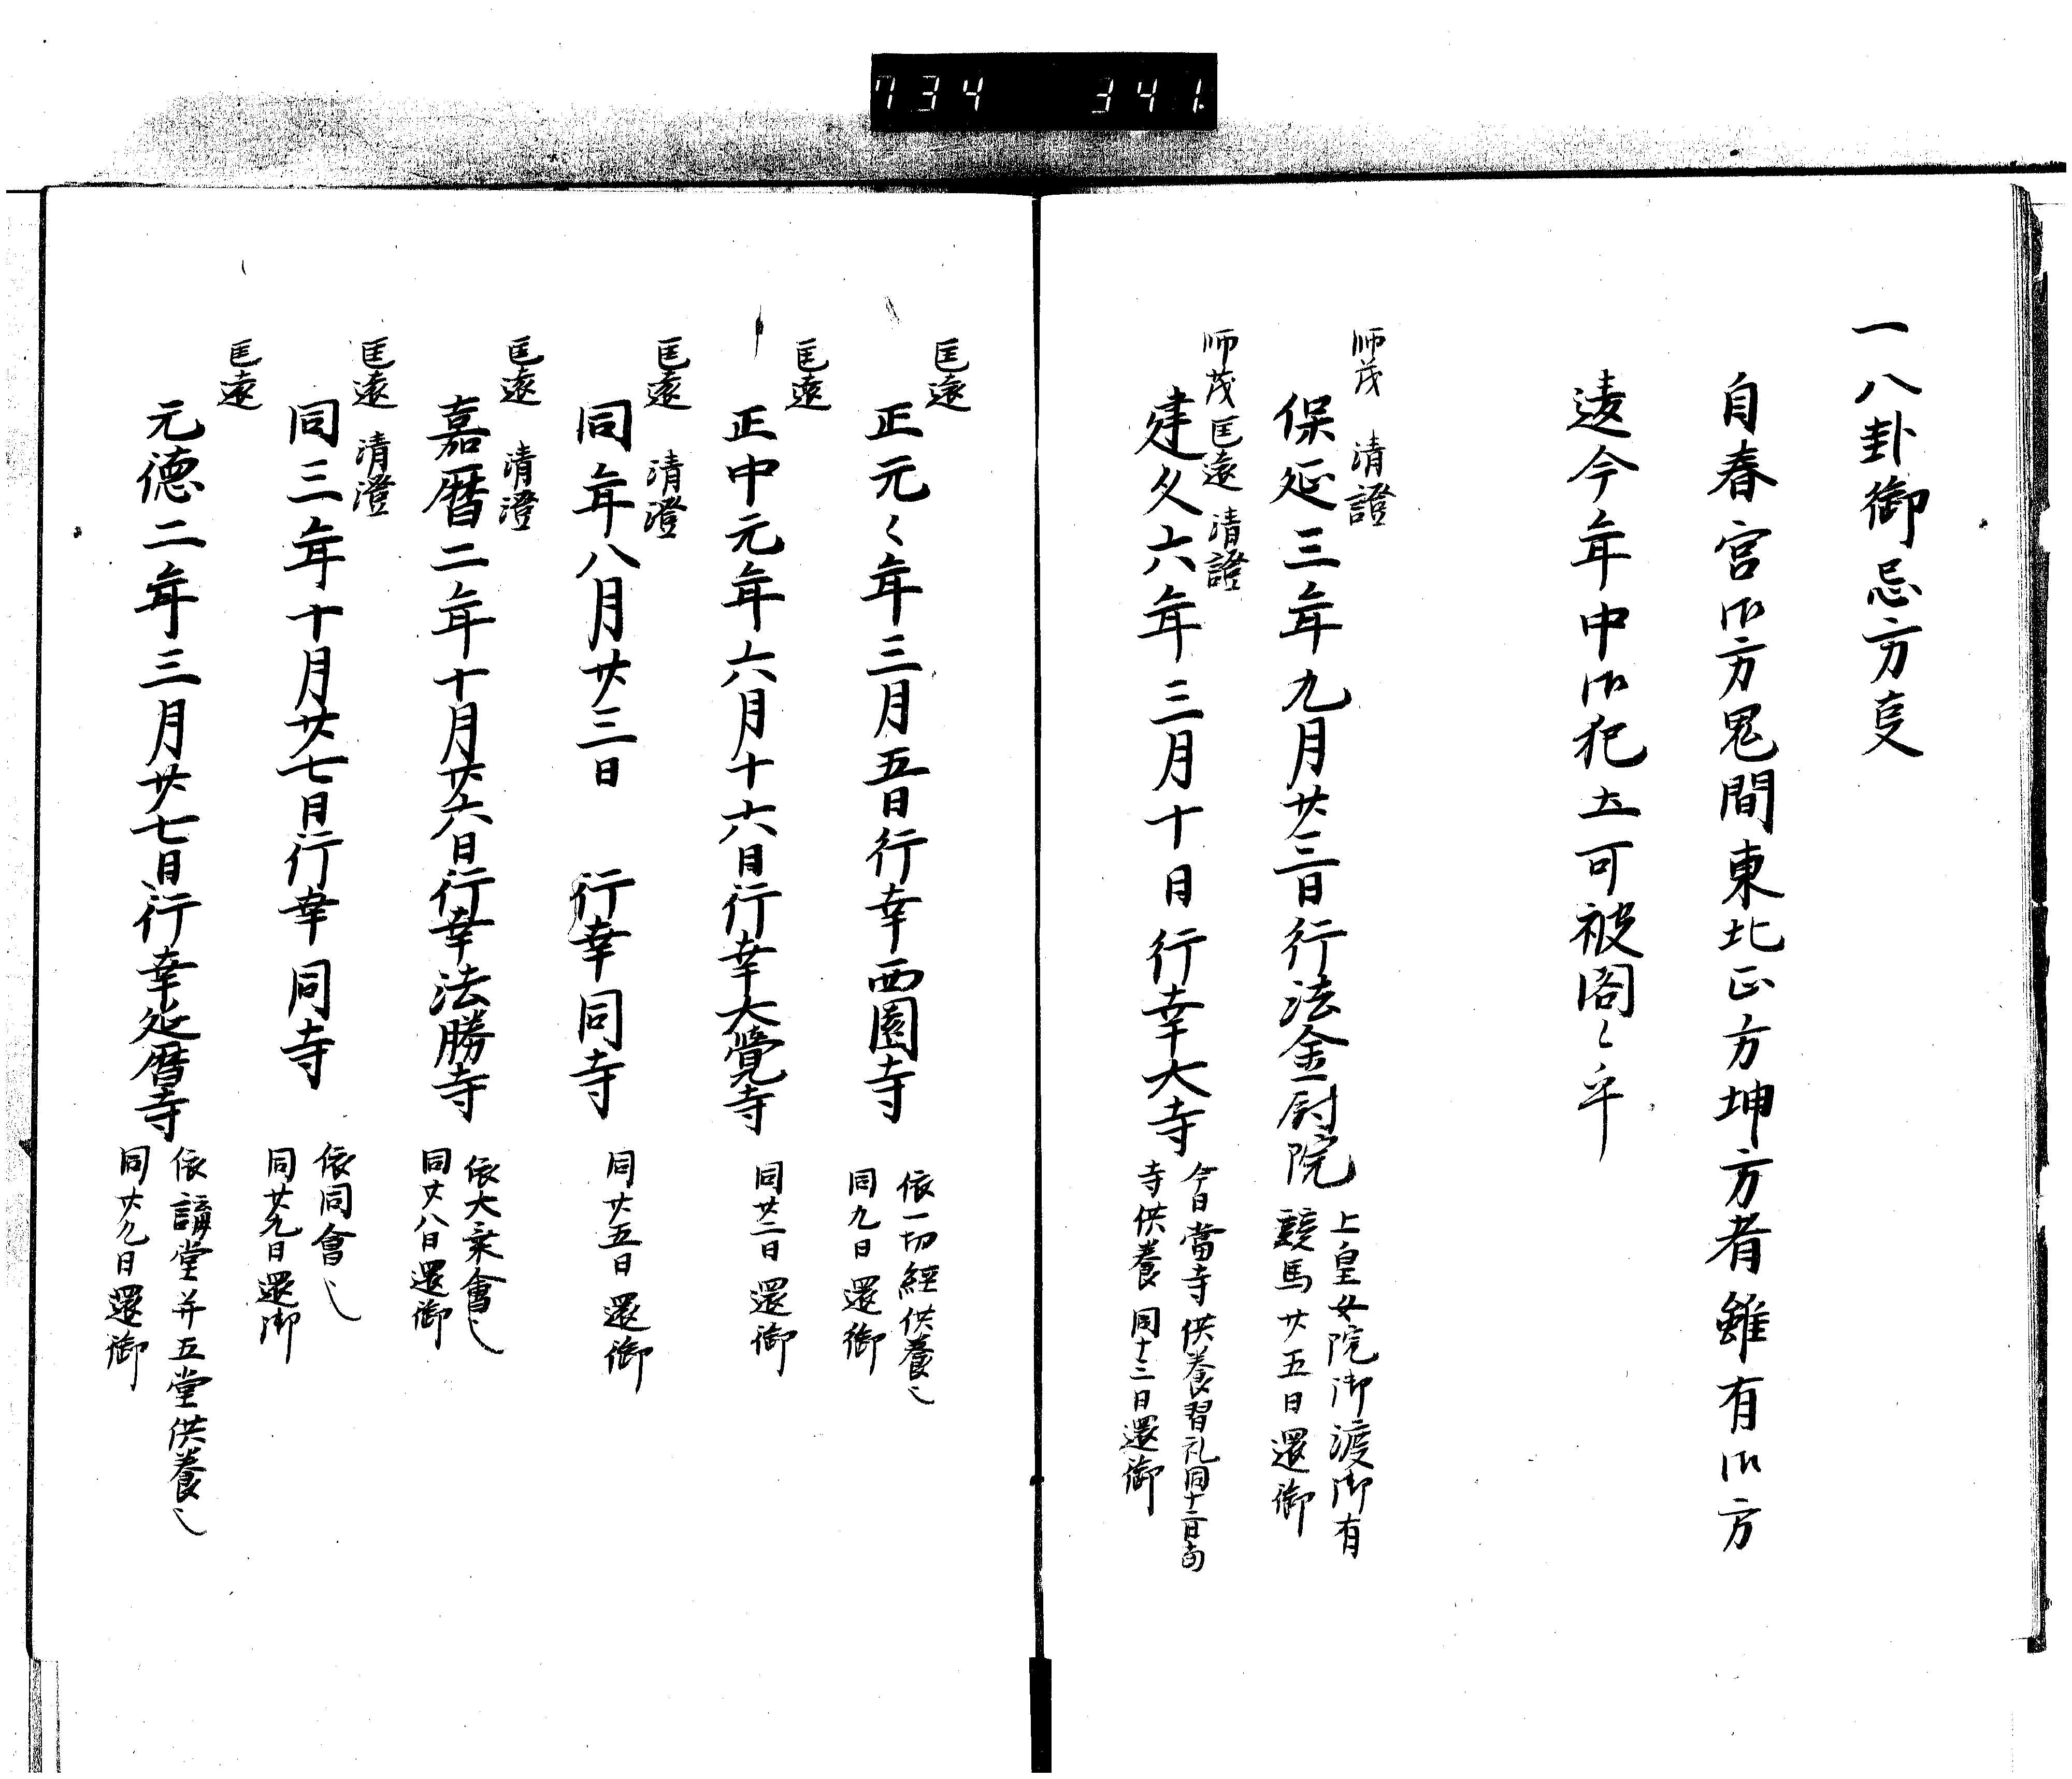 734 341
一八卦御忌方事
自春宮御方鬼間東北正方坤方者雖有御方
違今年中御犯土可被閣々乎
師茂 清證
保延三年九月廿三日行法金剛院
上皇女院御渡御有
競馬廿五日還御
師茂匡遠 清證
建久六年三月十日行幸大寺
今日當寺供養習礼同十二日
寺供養 同十三日還御
匡遠
正元々年三月五日行幸西園寺
依一切經供養也
同九日還御
匡遠
正中元年六月十六日行幸大覺寺
同廿二日還御
匡遠 清澄
同年八月廿三日 行幸同寺
同廿五日還御
匡遠 清澄
嘉暦二年十月廿六日行幸法勝寺
依大乗會也
同廿八日還御
匡遠 清澄
同三年十月廿七日行幸同寺
依同會也
同廿九日還御
匡遠
元德二年三月廿七日行幸延暦寺
依講堂并五堂供養也
同廿九日還御